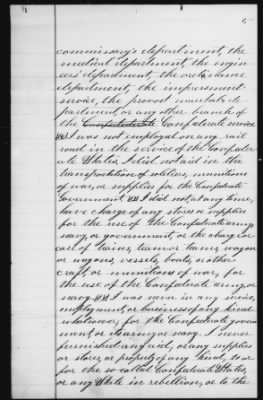 commissary's department, the
medical department, the engin
eers' department, the ordinance
department, the impressment
service, the provost marshals de
partment, or any other branch of
the Confederate Confederate service.
I was not employed on any rail
road in the service of the Confeder
ate States, I did not aid in the
transportation of soldiers, munitions
of war, or supplies for the Confederate
Government. I did not, at any time,
have charge of any stores or supplies
for the use of the Confederate army,
navy, or government, or the charge or
care of trains, team or teams, wagon
or wagons, vessels, boats, or other
craft, or munitions of war, for
the use of the Confederate army or
navy. I was never in any service,
employment, or business of any kind
whatsoever, for the Confederate govern
ment, or its army or navy. I never
furnished any aid, or any supplies
or stores, or property of any kind, to or
for the so called Confederate States,
or any State in rebellion, or to the